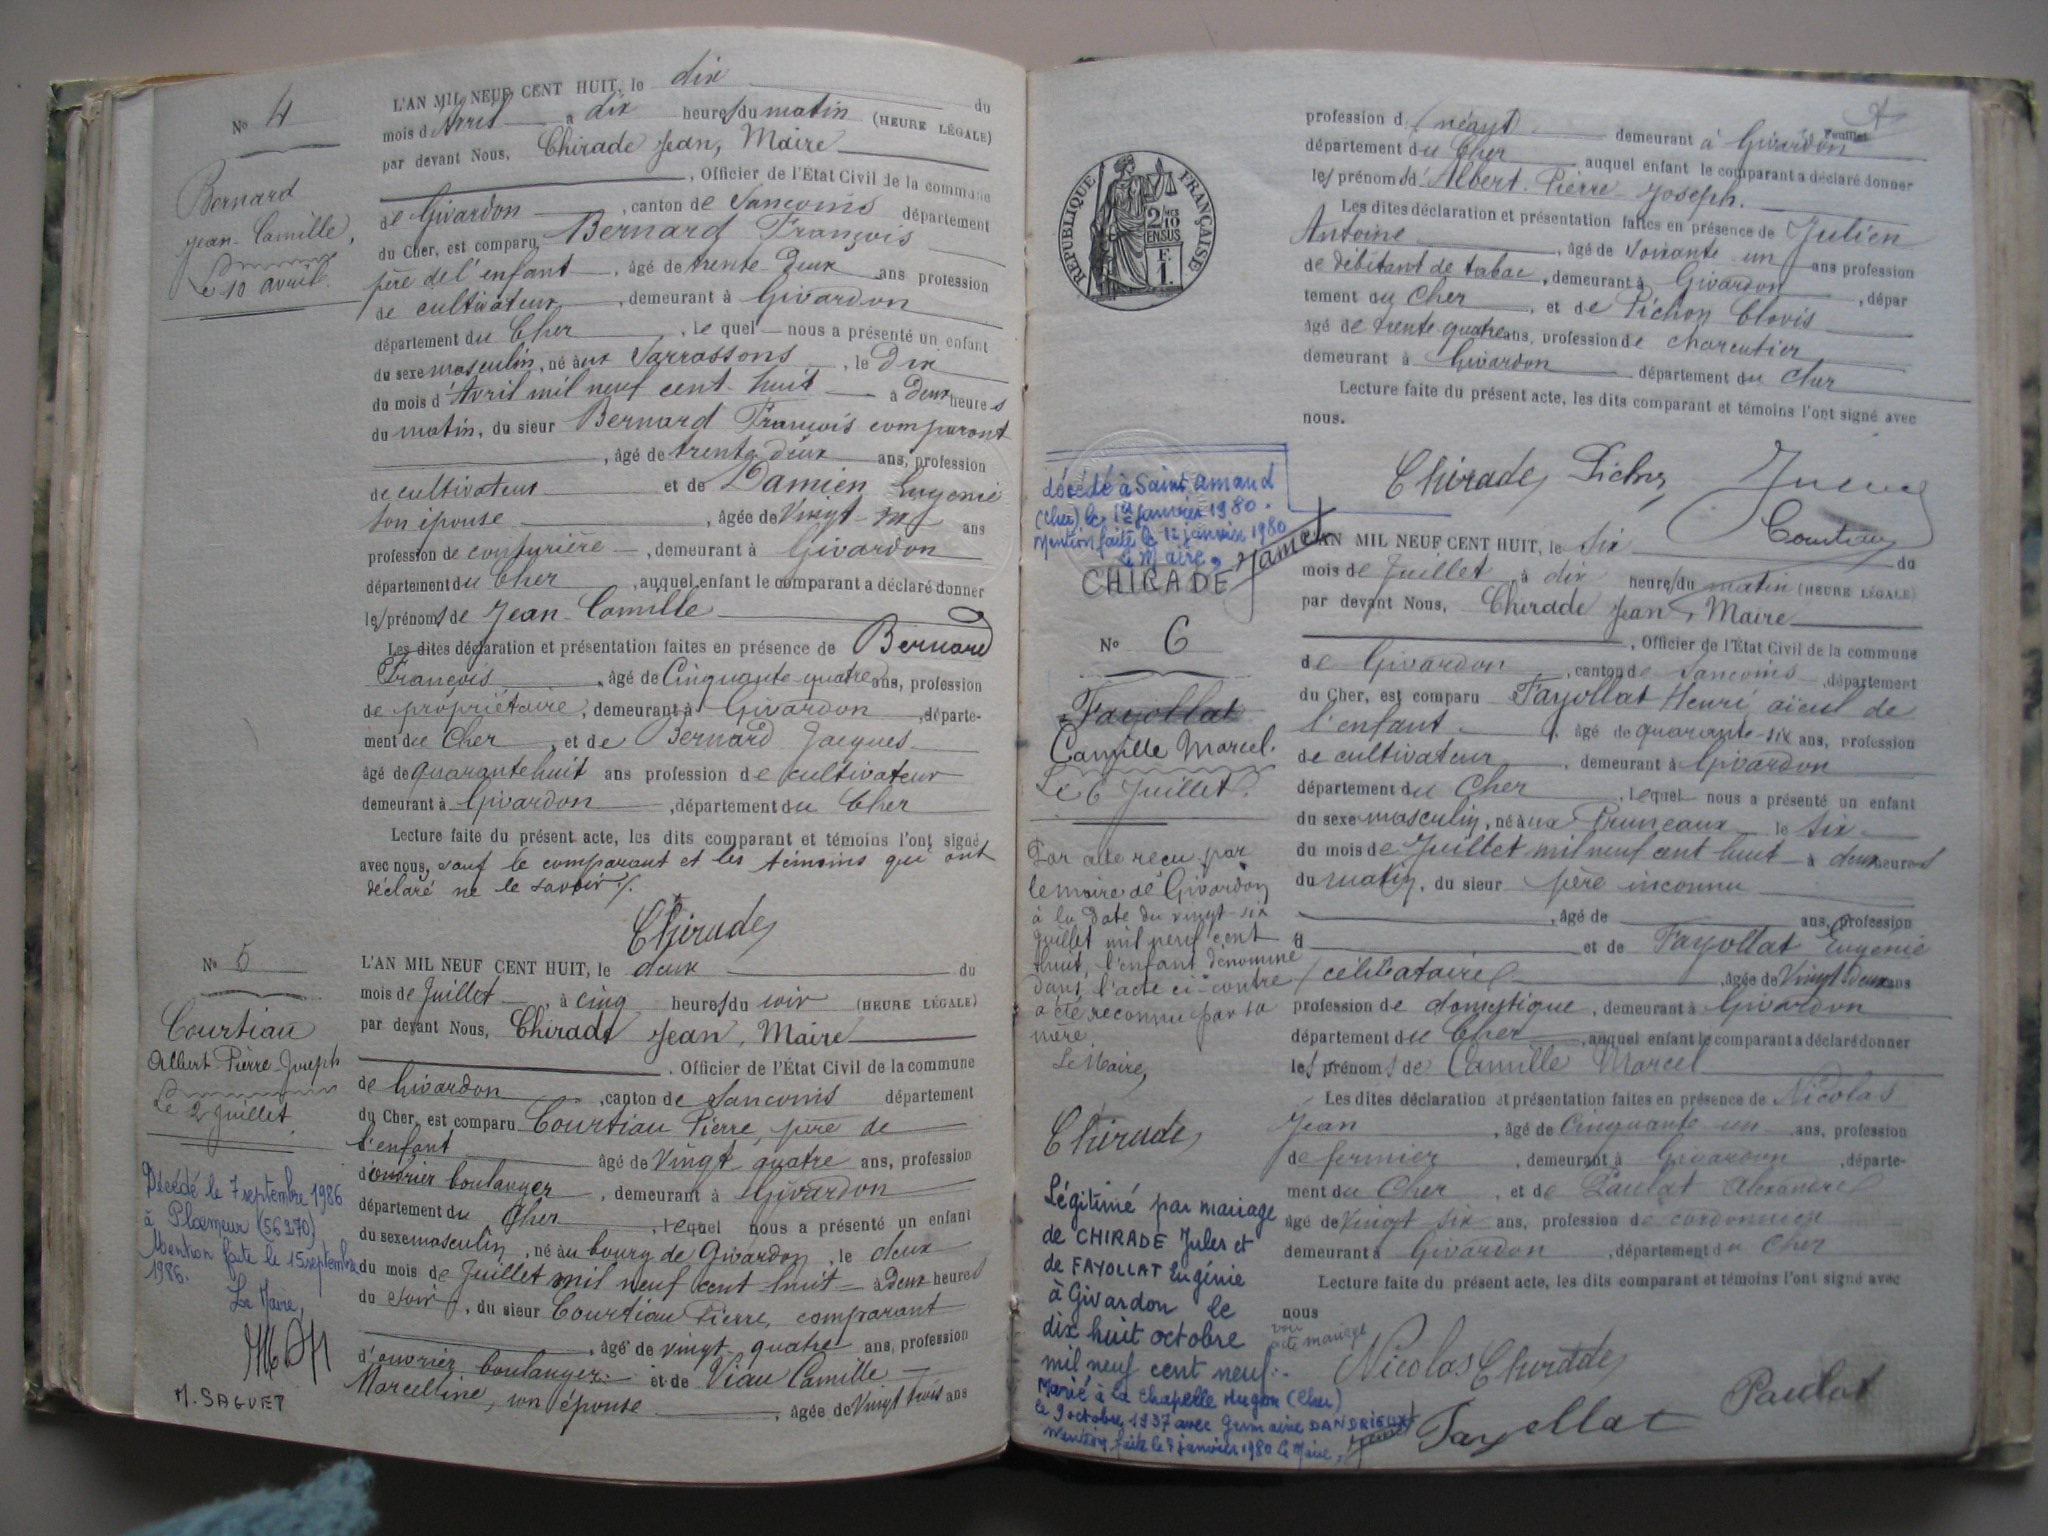 No 4
Bernard
Jean-Camille,
Le 10 avril.
L'AN MIL NEUF CENT HUIT, le dix du
mois d'Avril a dix heures du matin (HEURE LÉGALE)
par devant Nous, Chirade Jean, Maire
, Officier de l'État Civil de la commune
de Givardon, canton de Sancoins département
du Cher, est comparu Bernard François
père de l'enfant, âgé de trente deux ans profession
de cultivateur, demeurant à Givardon
département du Cher, lequel nous a présenté un enfant
du sexe masculin, né aux Sarrassons, le Dix
du mois d'Avril mil neuf cent huit à Deux heures
du matin, du sieur Bernard François comparant
, âgé de trente deux ans, profession
de cultivateur et de Damien Eugenie
son épouse, âgée de Vingt- ans
profession de couturière, demeurant à Givardon
département du Cher, auquel enfant le comparant a déclaré donner
les prénoms de Jean-Camille
Les dites déclaration et présentation faites en présence de Bernard
François, âgé de Cinquante quatre ans, profession
de propriétaire, demeurant à Givardon, départe-
ment du Cher, et de Bernard Jacques
âgé de quarante huit ans profession de cultivateur
demeurant à Givardon, département du Cher
Lecture faite du présent acte, les dits comparant et témoins l'ont signé
avec nous, sauf le comparant et les témoins qui ont
déclaré ne le savoir.
Chirade
No 5
Courtiau
Albert-Pierre-Joseph
Le 2 Juillet.
Décédé le 7 septembre 1986
à Ploemeur (56270)
Mention faite le 15 septembre
1986.
Le Maire,
M. SAGUET
L'AN MIL NEUF CENT HUIT, le deux du
mois de Juillet, à cinq heures du soir (HEURE LÉGALE)
par devant Nous, Chirade Jean, Maire
. Officier de l'État Civil de la commune
de Givardon, canton de Sancoins département
du Cher, est comparu Courtiau Pierre, père de
l'enfant âgé de vingt quatre ans, profession
d'ouvrier boulanger, demeurant à Givardon
département du Cher, lequel nous a présenté un enfant
du sexe masculin, né au bourg de Givardon, le deux
du mois de Juillet mil neuf cent huit à Deux heures
du soir, du sieur Courtiau Pierre, comparant
, âgé de vingt quatre ans, profession
d'ouvrier boulanger et de Viau Camille
Marcelline, son épouse, âgée de Vingt trois ans
Feuillet
profession d néant demeurant à Givardon
département du Cher auquel enfant le comparant a déclaré donner
les prénoms d'Albert-Pierre-Joseph.
Les dites déclaration et présentation faites en présence de Julien
Antoine, âgé de soixante un ans profession
de débitant de tabac, demeurant à Givardon, dépar
tement du Cher, et de Pichon Clovis
âgé de trente quatre ans, profession de charcutier
demeurant à Givardon département du Cher
Lecture faite du présent acte, les dits comparant et témoins l'ont signé avec
nous.
Chirade Pichon
Courtiau
RÉPUBLIQUE FRANÇAISE
2/10 EN SUS
F.
1.
décédé à Saint Amand
(Cher) le 1er janvier 1980.
Mention faite le 12 janvier 1980
Le Maire,
CHIRADE
No 6
Fayollat
Camille Marcel.
Le 6 Juillet.
Par acte reçu par
le maire de Givardon
à la date du vingt-six
Juillet mil neuf cent
huit, l'enfant dénommé
dans l'acte ci-contre
a été reconnu par sa
mère
Le Maire,
Chirade
Légitimé par mariage
de CHIRADE Jules et
de FAYOLLAT Eugénie
à Givardon le
dix huit octobre
mil neuf cent neuf.
Marié à la Chapelle Hugon (Cher)
le 9 octobre 1937 avec Germaine DANDRIEUX
Mention faite le janvier 1980 Le Maire,
L'AN MIL NEUF CENT HUIT, le six du
mois de Juillet, à dix heures du matin (HEURE LÉGALE)
par devant Nous, Chirade Jean, Maire
, Officier de l'État Civil de la commune
de Givardon, canton de Sancoins, département
du Cher, est comparu Fayollat Henri aïeul de
l'enfant, âgé de quarante-six ans, profession
de cultivateur, demeurant à Givardon
département du Cher, lequel nous a présenté un enfant
du sexe masculin, né aux Pruneaux le six
du mois de Juillet mil neuf cent huit à deux heures
du matin, du sieur père inconnu
, âgé de ans, profession
d et de Fayollat Eugenie
célibataire, âgée de Vingt deux ans
profession de domestique, demeurant à Givardon
département du Cher, auquel enfant le comparant a déclaré donner
les prénoms de Camille Marcel
Les dites déclaration et présentation faites en présence de Nicolas
Jean, âgé de Cinquante un ans, profession
de fermier, demeurant à Givardon, départe-
ment du Cher, et de Paulat Alexandre
âgé de Vingt six ans, profession de cordonnier
demeurant à Givardon, département du Cher
Lecture faite du présent acte, les dits comparant et témoins l'ont signé avec
nous
voir
acte mariage
Nicolas Chirade
Paulat
Fayollat